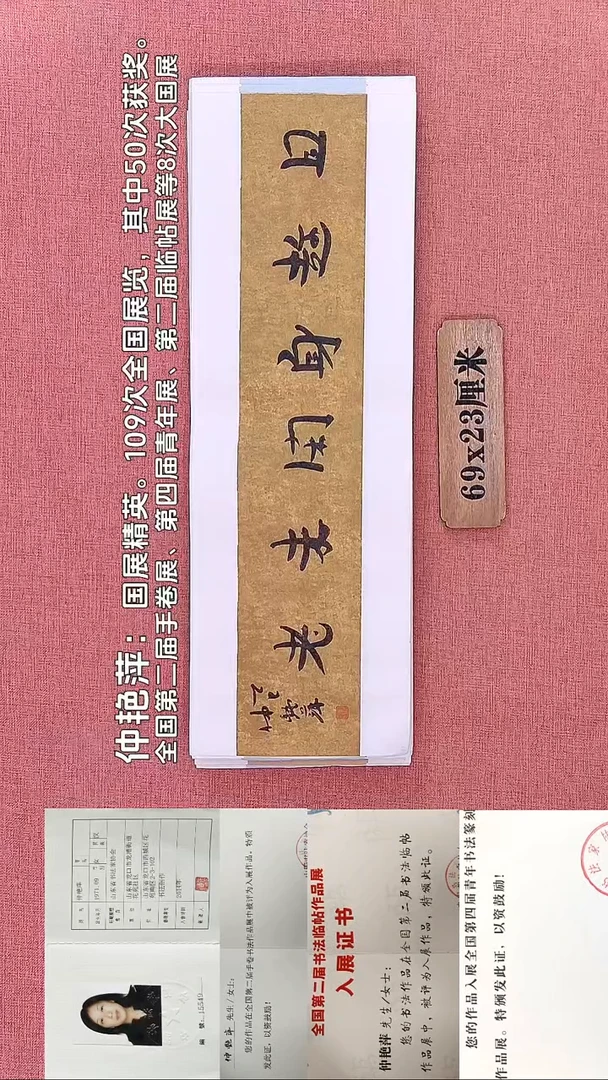 仲艳萍：国展精英。109次全国展览，其中50次获奖。
全国第二届手卷展、第四届青年展、第二届临帖展等8次大国展
且趁身闲未老
仲艳萍
69x23厘米
仲艳萍
山东省书法家协会
仲艳萍 先生/女士：
您的作品在全国第二届手卷书法作品展中被评为入展作品，特颁
发此证，以资鼓励！
全国第二届书法临帖作品展
入展证书
仲艳萍先生/女士：
您的书法作品在全国第二届书法临帖
作品展中，被评为入展作品，特颁此证。
您的作品入展全国第四届青年书法篆刻
作品展。特颁发此证，以资鼓励！